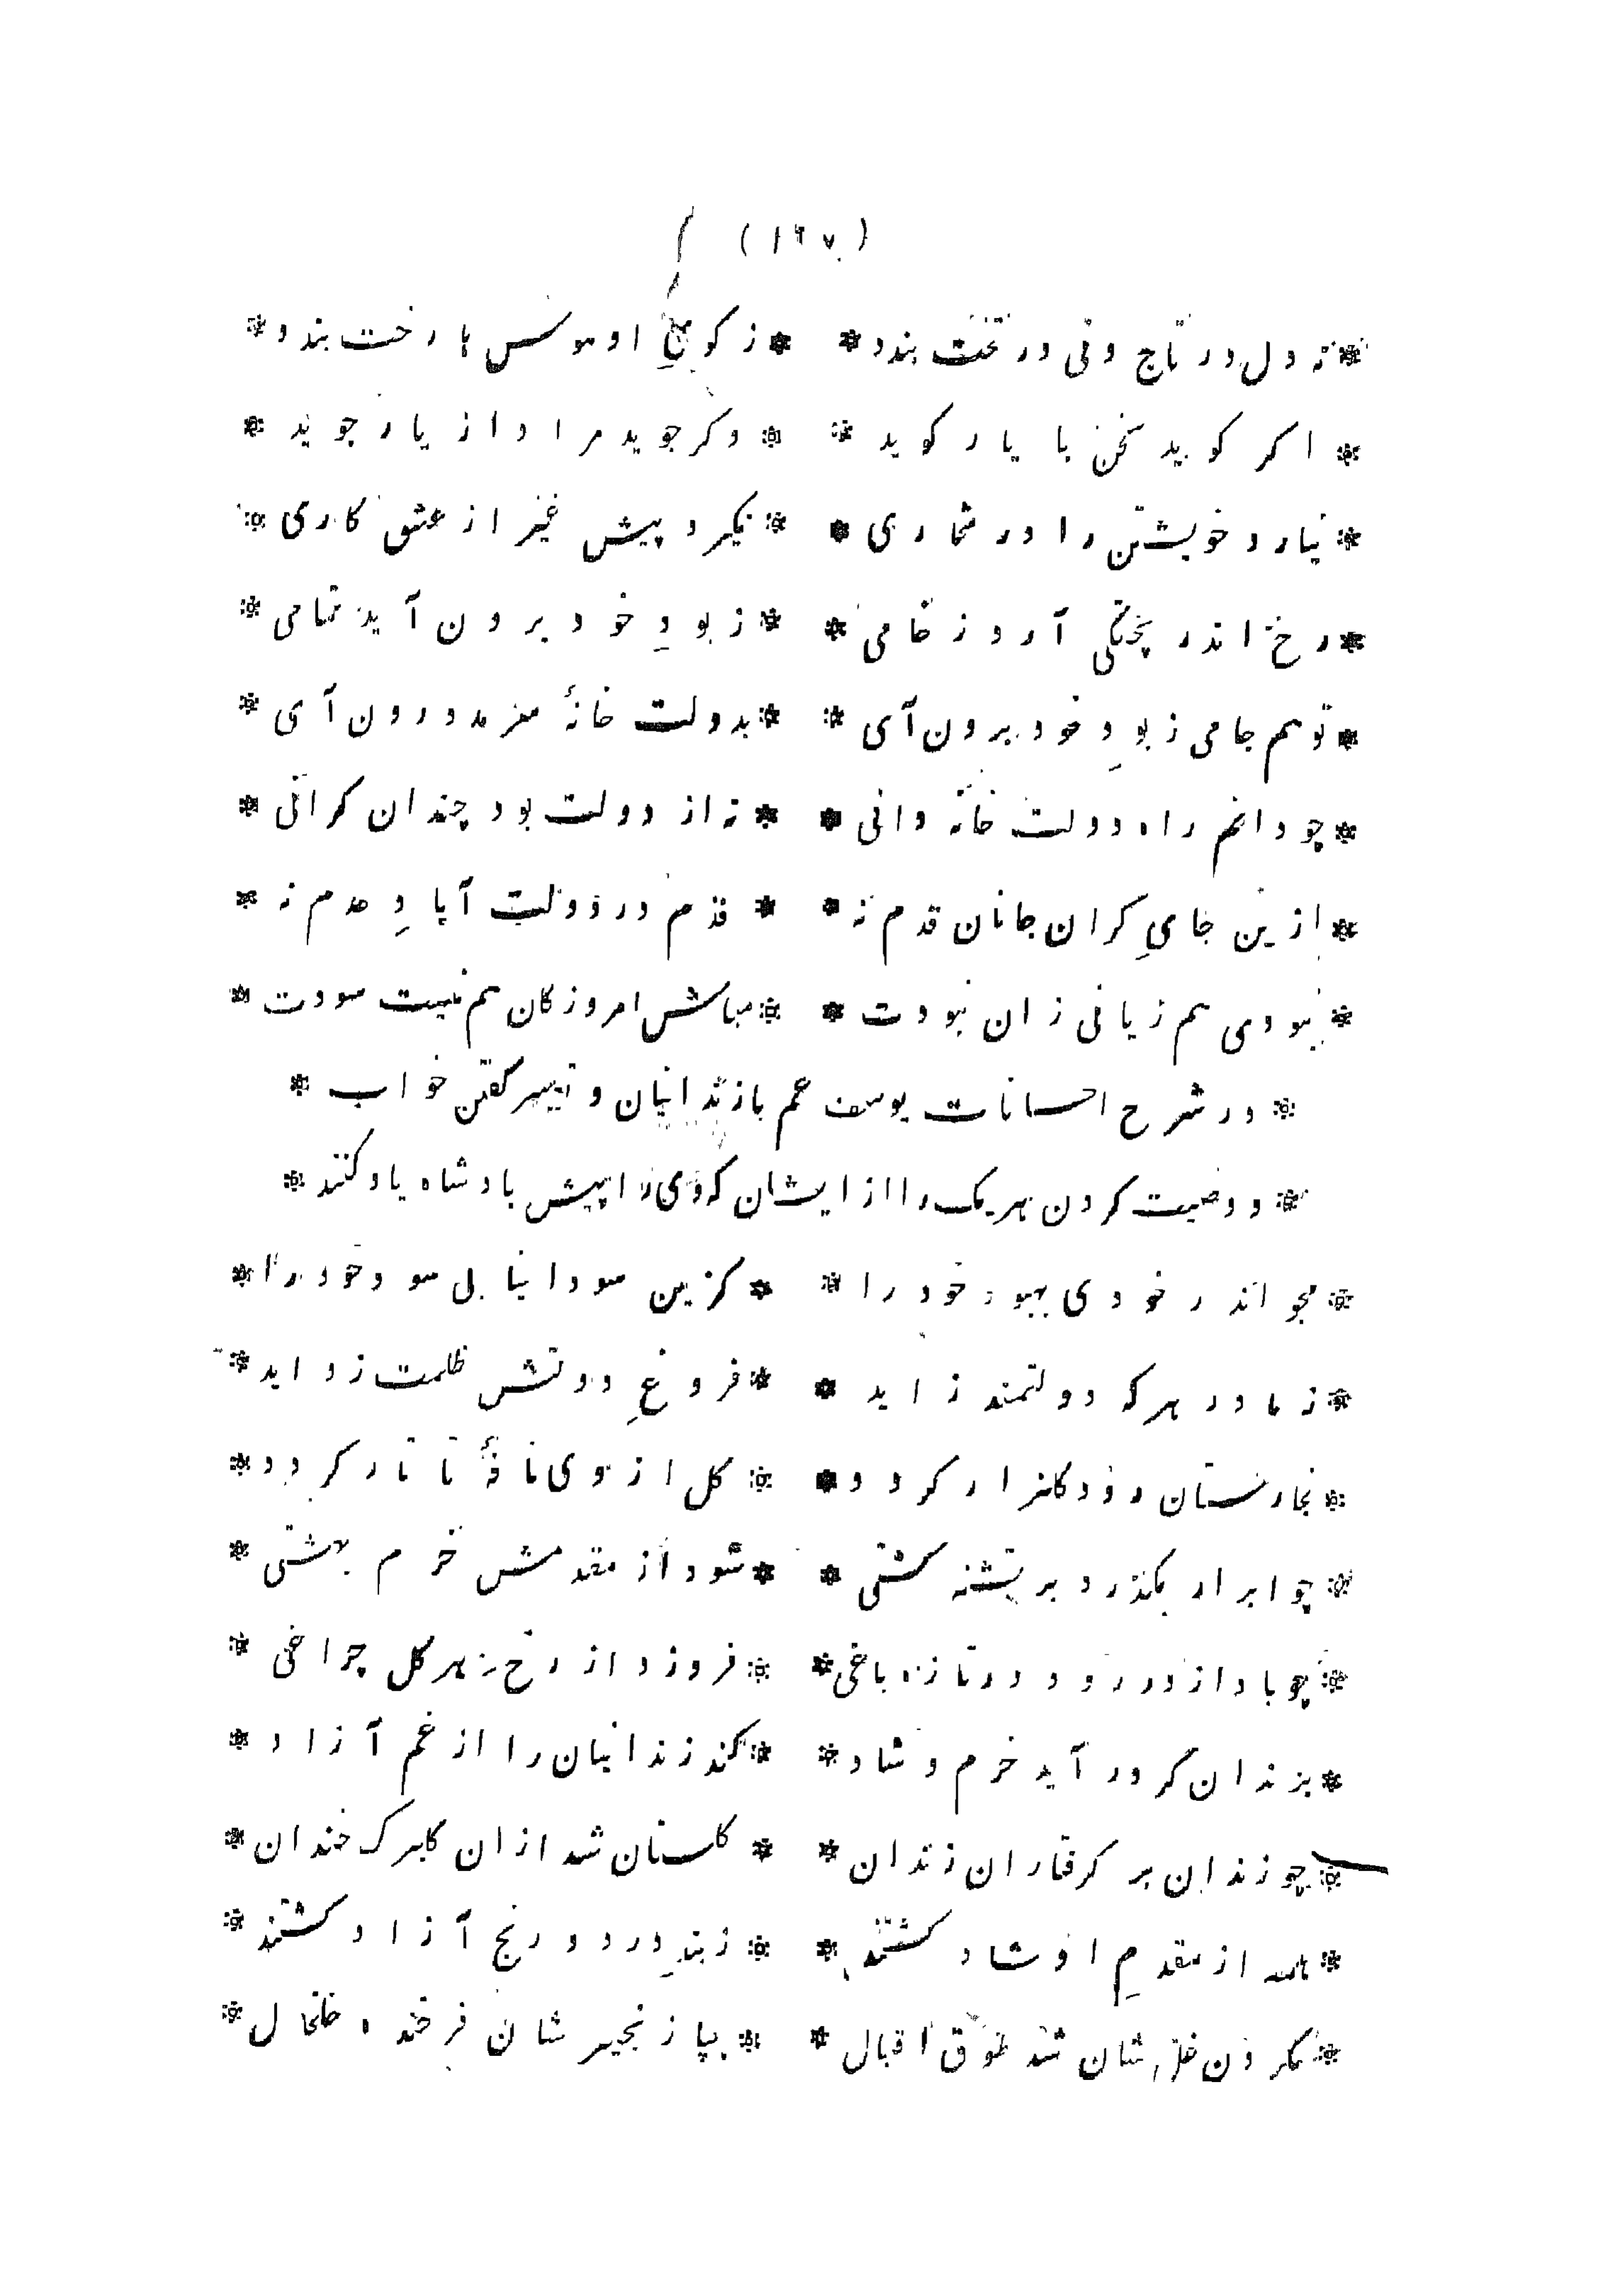 (۱۹۷)
* نه دل در تاج و نی در تخت بندد * * ز کوی او هوس ها رخت بندد *
* اکر کوید سخن با یار کوید * * وکر جوید مراد از یار جوید *
* نیارد خویشتن را در شماری * * نکیرد پیش غیر از عشق کاری *
* رخ اندر پختکی آرد ز خامی * * ز بودِ خود برون آید تمامی *
* تو هم جامی ز بودِ خود برون آی * * بدولت خانهٔ سرمد درون آی *
* چو دانم راه دولت خانه دانی * * نه از دولت بود چندان کرانی *
* ازین جایِ کران جانان قدم نه * * قدم در دولت آبادِ عدم نه *
* نبودی هم زیانی زان نبودت * * مباش امروز کان هم نیست سودت *
* در شرح احسانات یوسف عم با زندانیان و تعبیر کفتن خواب *
* و وصیت کردن هر یک را از ایشان که وی را پیش بادشاه یاد کنند *
* مجو اندر خودی بهبود خود را * * کزین سودا نیابی سود خود را *
* ز مادر هر که دولتمند زاید * * فروغِ دولتش ظلمت زداید *
* بخارستان رود کلزار کردد * * کل از وی نافهٔ تاتار کردد *
* چو ابر ار بکذرد بر تشنه کشتی * * شود از مقدمش خرم بهشتی *
* چو باد از در رود در تازه باغی * * فروزد از رخ هر کل چراغی *
* بزندان کر در آید خرم و شاد * * کند زندانیان را از غم آزاد *
* چو زندان بر کرفتاران زندان * * کلستان شد از ان کلبرک خندان *
* همه از مقدمِ او شاد کشتند * * ز بندِ درد و رنج آزاد کشتند *
* بکردن غل شان شد طوق اقبال * * بپا زنجیر شان فرخنده خلخال *